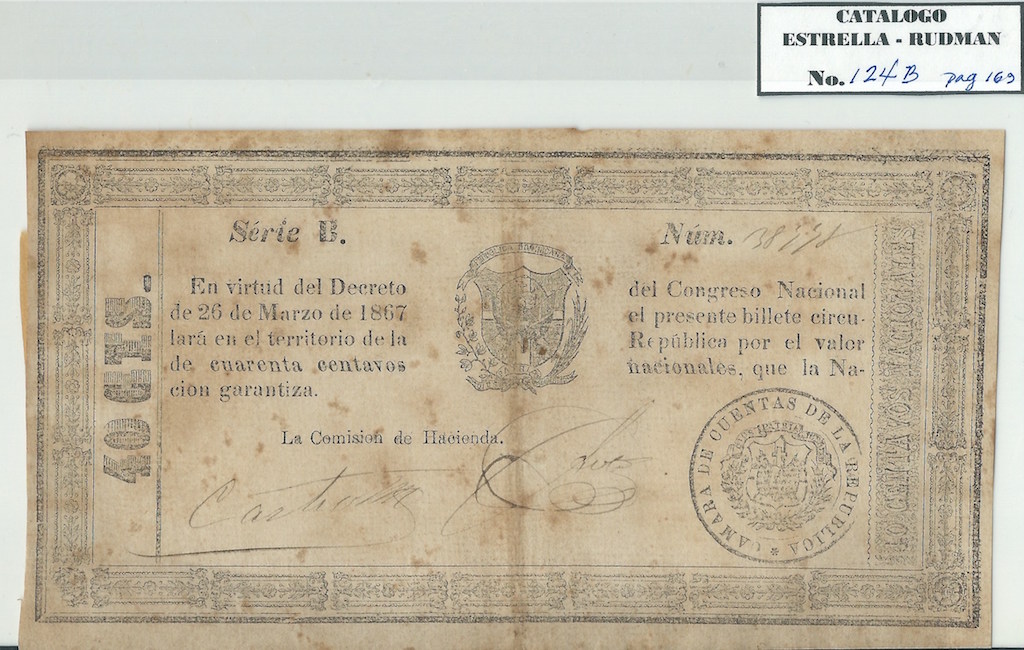 CATALOGO
ESTRELLA - RUDMAN
No. 124 B pag 169
Série B.
Núm.
40 CENTS.
En virtud del Decreto del Congreso Nacional
de 26 de Marzo de 1867 el presente billete circu-
lará en el territorio de la República por el valor
de cuarenta centavos nacionales, que la Na-
cion garantiza.
La Comision de Hacienda.
CAMARA DE CUENTAS DE LA REPUBLICA *
40 CENTAVOS NACIONALES